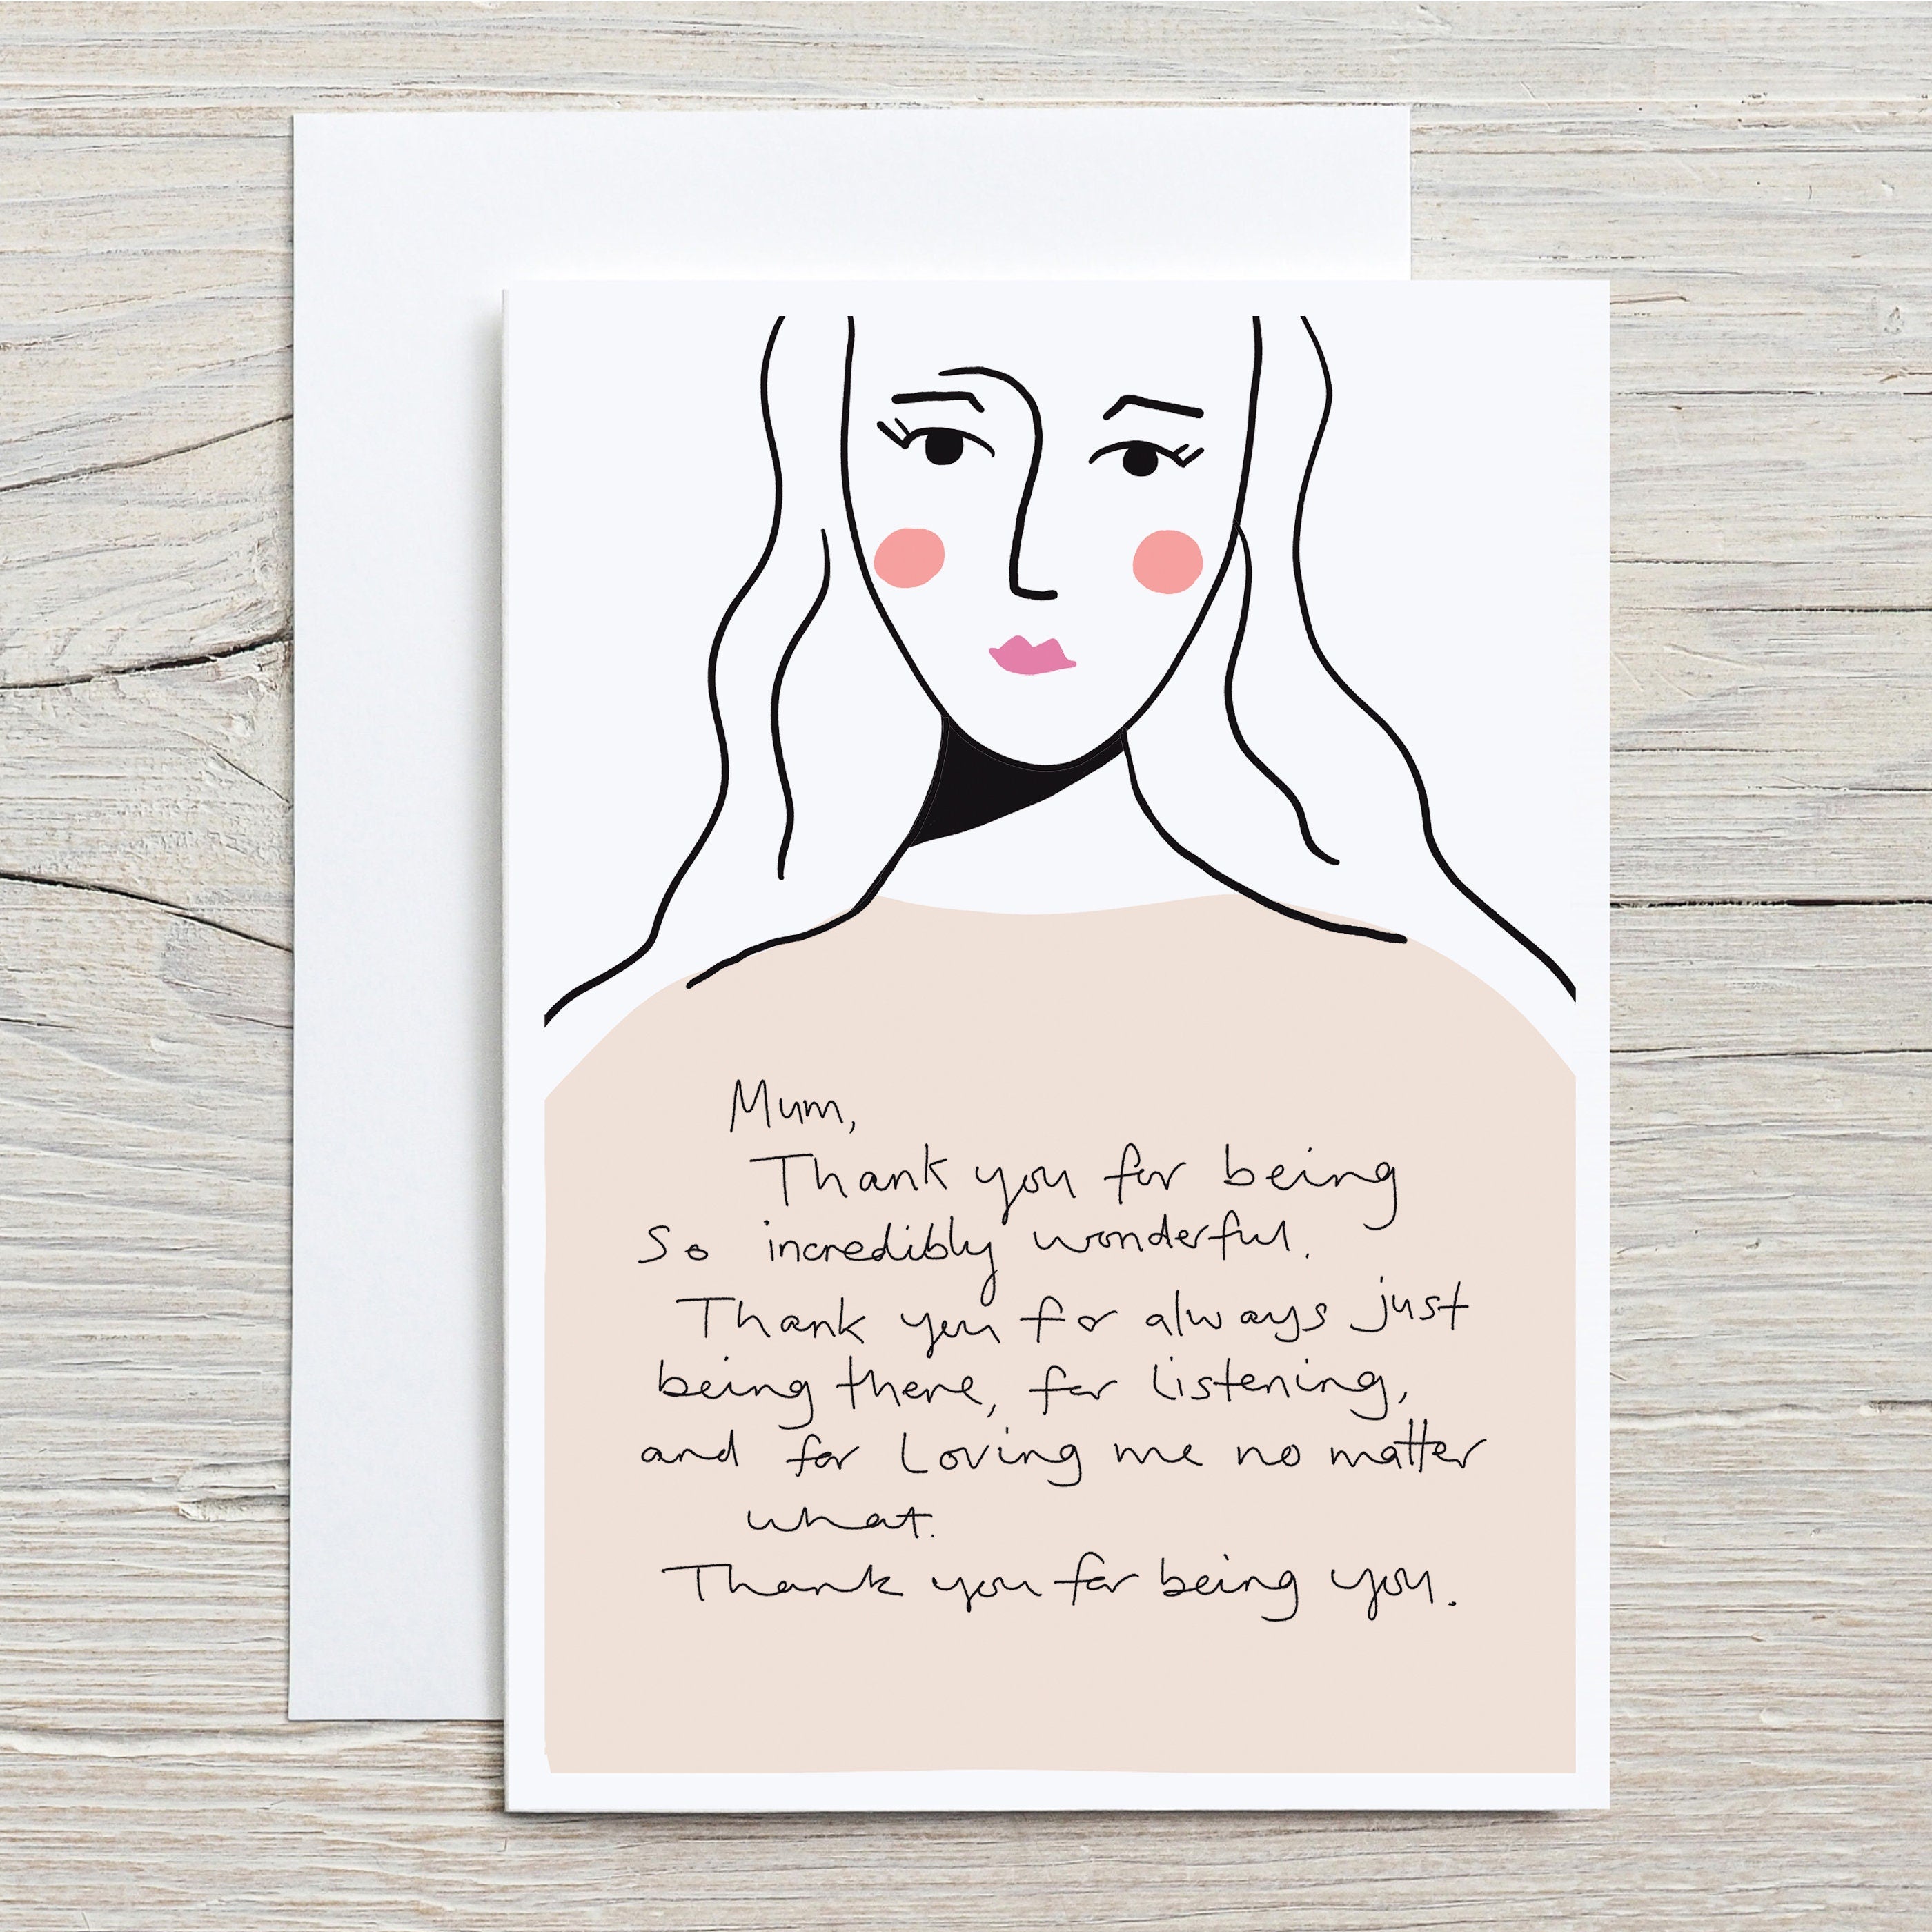 Mum,
Thank you for being
so incredibly wonderful.
Thank you for always just
being there, for listening,
and for loving me no matter
what.
Thank you for being you.